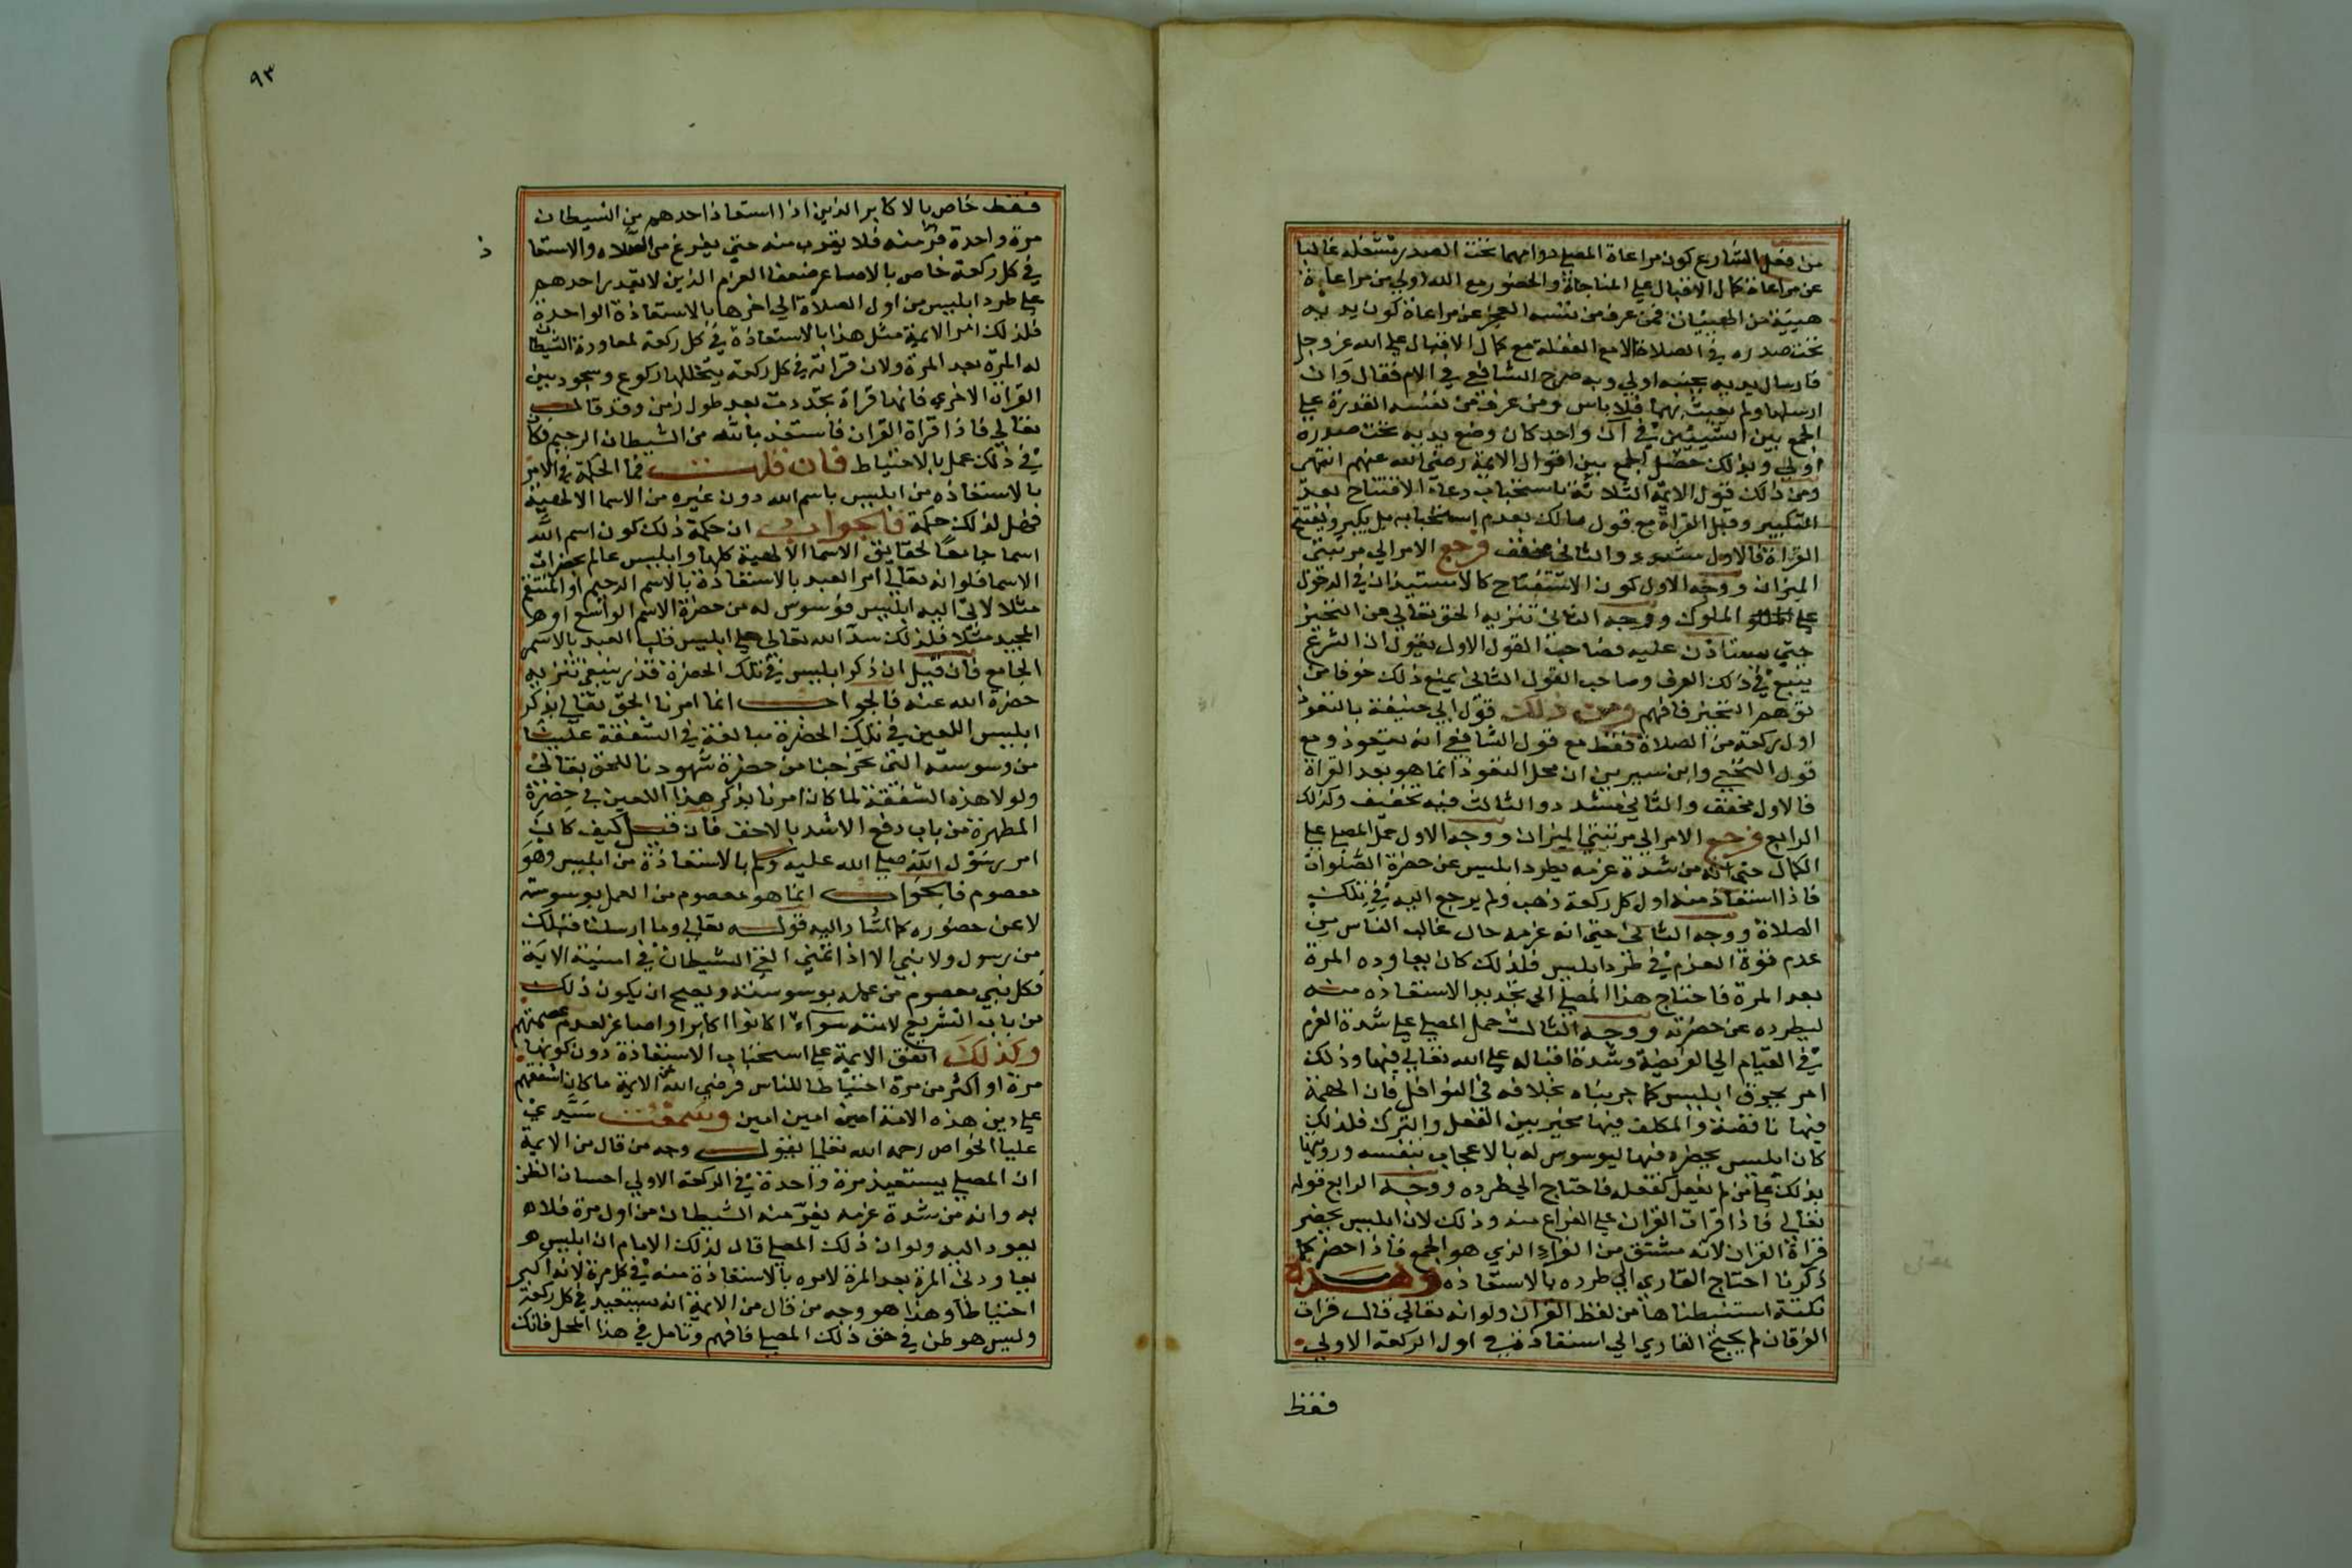 من فعل الشارع كون مراعاة المصلي دوامهما تحت الصدر يشغله غالبا
عن مراعاة كمال الاقبال علي المناجاة والحضور مع الله اولي من مراعاة
هيبة من الهيئات فمن عرف من نفسه العجز عن مراعاة كون يديه
تحت صدره في الصلاة الا مع الغفلة مع كمال الاقبال علي الله عز وجل
فارسال يديه بجنبه اولي وبه صرح الشافعي في الام فقال وان
ارسلهما ولم يعبث بهما فلا باس ومن عرف من نفسه القدرة علي
الجمع بين الشيئين في آن واحد كان وضع يديه تحت صدره
اولي وبذلك حصل الجمع بين اقوال الايمة رضي الله عنهم انتهي
ومن ذلك قول الايمة الثلاثة باستحباب دعاء الافتتاح بعد
التكبير وقبل القراة مع قول مالك بعدم استحبابه بل يكبر ويفتتح
القراة فالاول مشدد والثاني مخفف فرجع الامر الي مرتبتي
الميزان ووجه الاول كون الاستفتاح كالاستيذان في الدخول
علي الملوك ووجه الثاني تنزيه الحق تعالي عن التحيز
حتي يستاذن عليه فصاحب القول الاول يقول ان الشرع
يتبع في ذلك العرف وصاحب القول الثاني يمنع ذلك خوفا من
توهم التحيز فافهم ومن ذلك قول ابي حنيفة بالتعوذ
اول ركعة من الصلاة فقط مع قول الشافعي انه يتعوذ ومع
قول النخعي وابن سيرين ان محل التعوذ انما هو بعد القراة
فالاول مخفف والثاني مشدد والثالث فيه تخفيف وكذلك
الرابع فرجع الامر الي مرتبتي الميزان ووجه الاول حمل المصلي علي
الكمال حتي انه من شدة عزمه يطرد ابليس عن حضرة الصلوات
فاذا استعاذ منه اول كل ركعة ذهب ولم يرجع اليه في تلك
الصلاة ووجه الثاني حتي انه عزمه حال غالب الناس من
عدم قوة العزم في طرد ابليس فلذلك كان يعاوده المرة
بعد المرة فاحتاج هذا المصلي الي تجديد الاستعاذه منه
ليطرده عن حضرته ووجه الثالث حمل المصلي علي شدة العزم
في القيام الي الفريضة وشدة اقباله علي الله تعالي فيها وذلك
امر يحرق ابليس كما جربناه بخلافه في النوافل فان الهمة
فيها ناقصة والمكلف فيها مخير بين الفعل والترك فلذلك
كان ابليس يحضره فيها ليوسوس له بالاعجاب بنفسه ورويتها
بذلك علي من لم يفعل كفعله فاحتاج الي طرده ووجه الرابع قوله
تعالي فاذا قرات القران علي الفراغ منه وذلك لان ابليس يحضر
قراة القران لانه مشتق من القراء الذي هو الجمع فاذا حضر كما
ذكرنا احتاج القاري الي طرده بالاستعاذه وهذه
نكتة استنبطناها من لفظ القران ولو انه تعالي قال قرات
الفرقان لم يحتج القاري الي استعاذة في اول الركعة الاولي
فقظ
٩٣
فقط خاص بالاكابر الذين اذا استعاذ احدهم من الشيطان
مرة واحدة فر منه فلا يقرب منه حتي يفرغ من الصلاه والاستعا
ذ
في كل ركعة خاص بالاصاغر ضعفا العزم الذين لا يقدر احدهم
علي طرد ابليس من اول الصلاة الي اخرها بالاستعاذة الواحدة
فلذلك امر الايمة مثل هذا بالاستعاذة في كل ركعة لمعاودة الشيطان
له المرة بعد المرة ولان قراته في كل ركعة يتخللها ركوع وسجود بين
القراة الاخري فانها قراة تجددت بعد طول زمن وقد قال
تعالي فاذا قراة القران فاستعذ بالله من الشيطان الرجيم فكان
في ذلك عمل بالاحتياط فان قلت فما الحكمة في الامر
بالاستعاذه من ابليس باسم الله دون غيره من الاسما الالهية
فهل لذلك حكمة فالجواب ان حكمة ذلك كون اسم الله
اسما جامعا لحقايق الاسما الالهية كلها وابليس عالم بحضرات
الاسما فلو انه تعالي امر العبد بالاستعاذة بالاسم الرحيم او المنتقم
مثلا لاتي اليه ابليس فوسوس له من حضرة الاسم الواسع او
المجيد مثلا فلذلك سد الله تعالي علي ابليس قلب العبد بالاسم
الجامع فان قيل ان ذكر ابليس في تلك الحضرة قذر ينبغي تنزيه
حضرة الله عنه فالجواب انما امرنا الحق تعالي بذكر
ابليس اللعين في تلك الحضرة مبالغة في الشفقة علينا
من وسوسته التي تخرجنا من حضرة شهودنا للحق تعالي
ولولا هذه الشفقة لما كان امرنا بذكر هذا اللعين في حضرة
المطهرة من باب دفع الاشد بالاخف فان قيل كيف كان
امر رسول الله صلي الله عليه وسلم بالاستعاذة من ابليس وهو
معصوم فالجواب انما هو معصوم من العمل بوسوسته
لا عن حضوره كما اشار اليه قوله تعالي وما ارسلنا قبلك
من رسول ولا نبي الا اذا تمني القي الشيطان في امنيته الاية
فكل نبي معصوم من عمله بوسوسته ويصح ان يكون ذلك
من باب التشريع لامته سواء كانوا اكابر او اصاغر لعدم عصمتهم
وكذلك اتفق الايمة علي استحباب الاستعاذة دون كونها
مرة او اكثر من مرة احتياطا للناس فرضي الله عن الايمة ما كان اشفقهم
علي دين هذه الامة امين امين امين وسمعت سيدي
عليا الخواص رحمه الله تعالي يقول وجه من قال من الايمة
ان المصلي يستعيذ مرة واحدة في الركعة الاولي احسان الظن
به وانه من شدة عزمه يفر منه الشيطان من اول مرة فلا
يعود اليه ولو ان ذلك المصلي قال لذلك الامام ان ابليس
يعاودني المرة بعد المرة لامره بالاستعاذة منه في كل مرة لانه اكبر
احتياطا وهذا هو وجه من قال من الايمة انه يستعيذ في كل ركعة
وليس هو ظن في حق ذلك المصلي فافهم وتامل في هذا المحل فانك